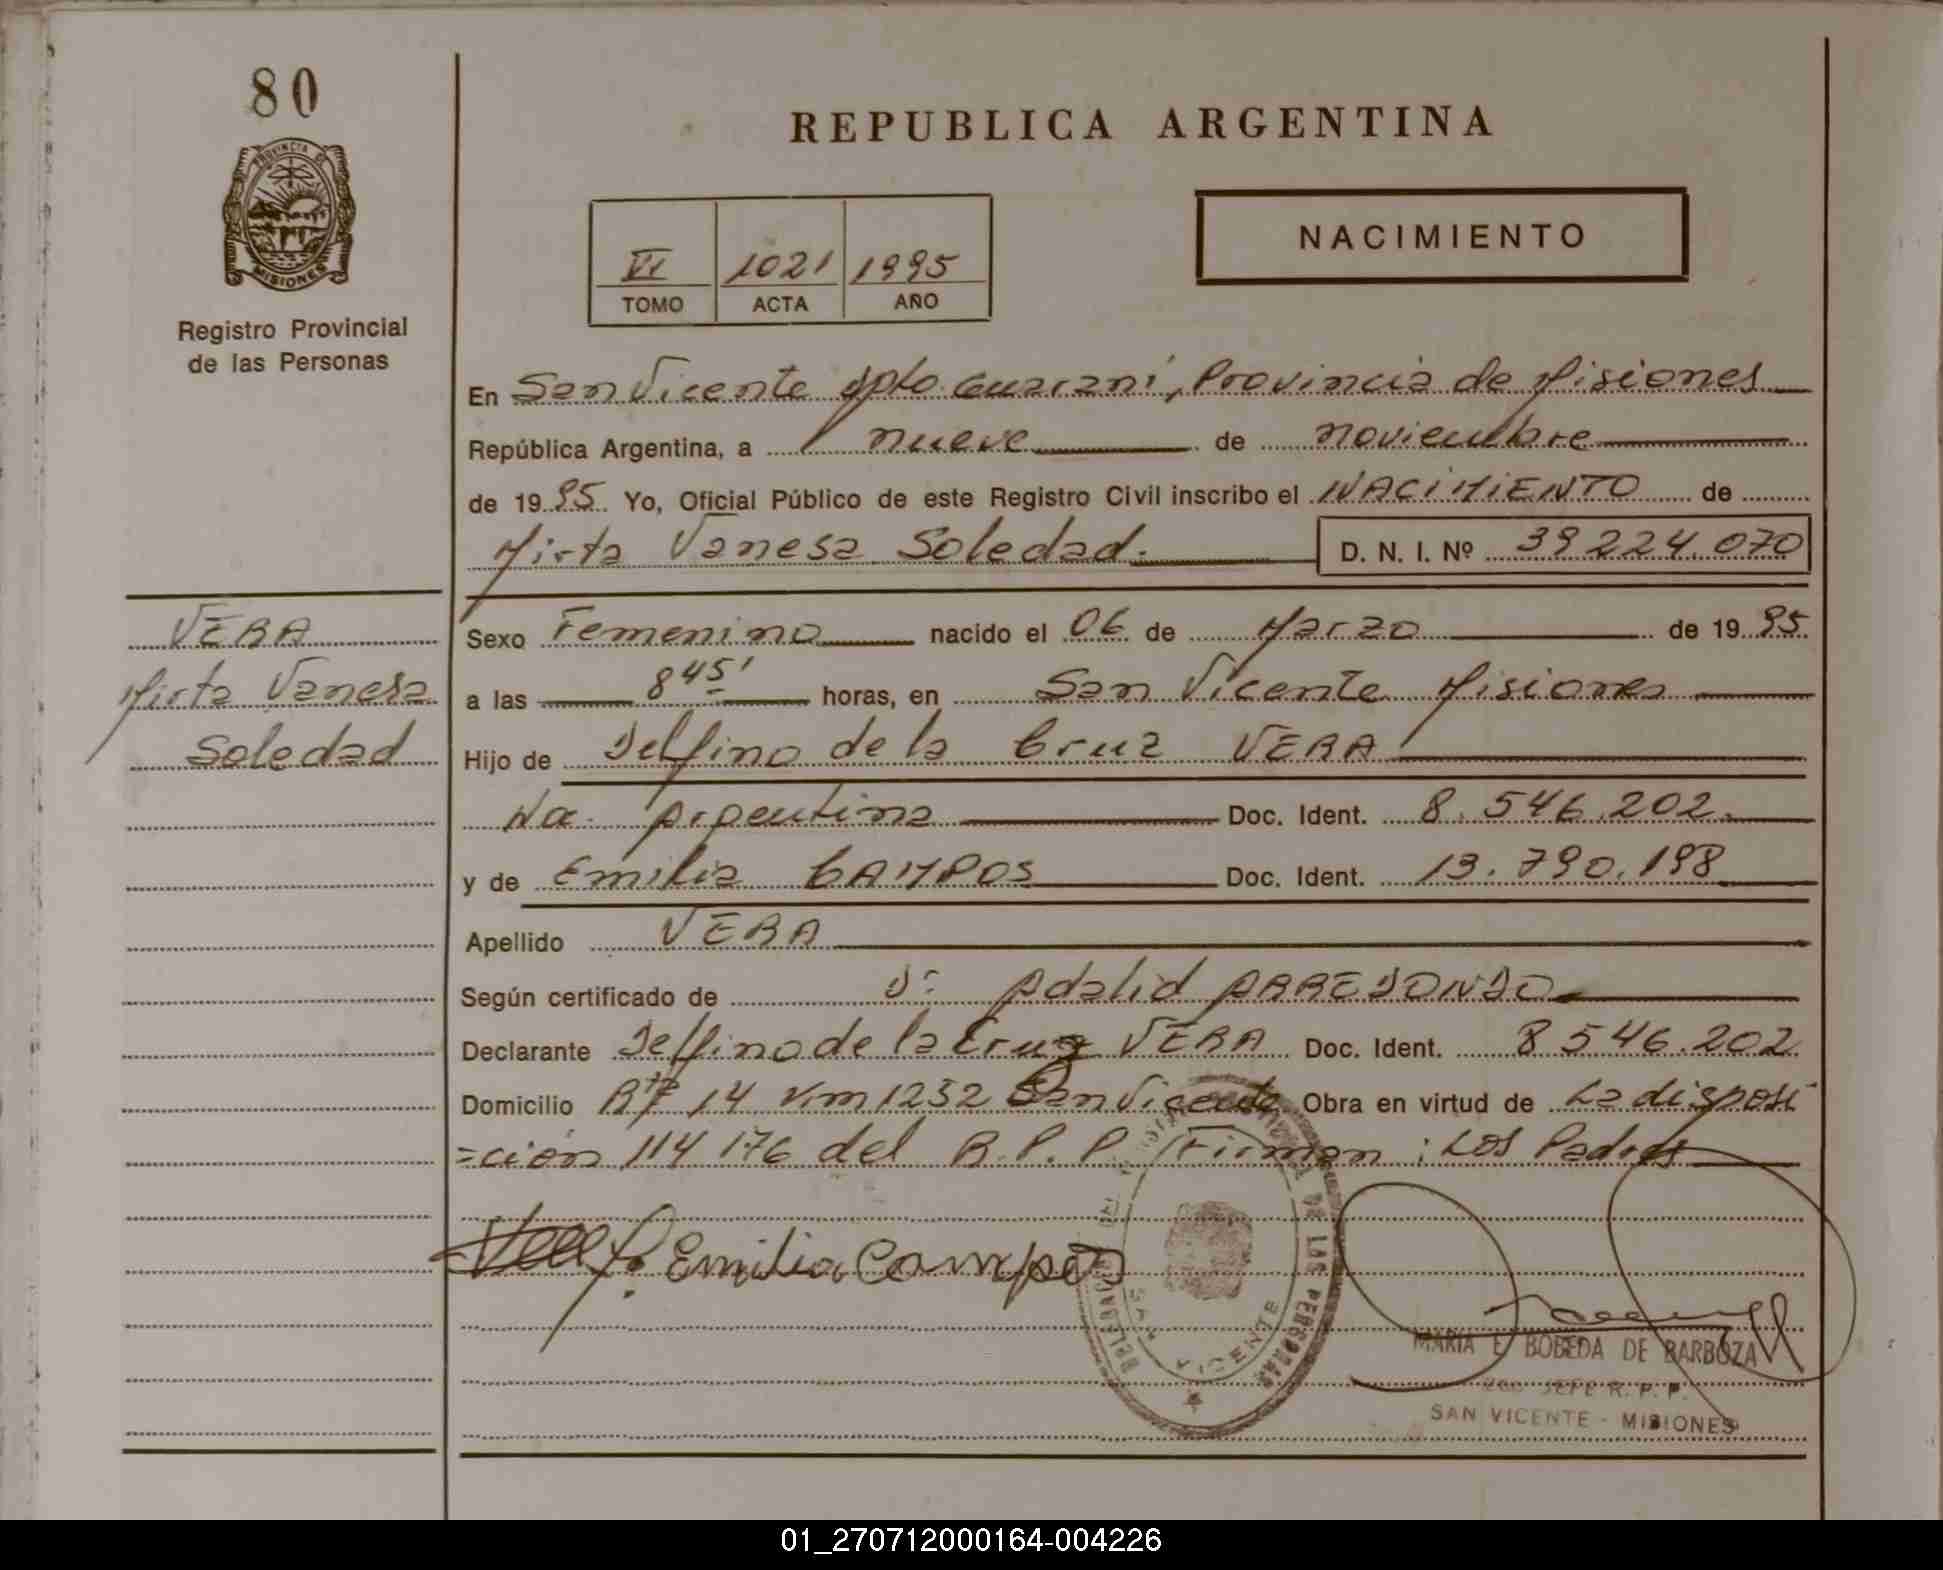 80
PROVINCIA DE
MISIONES
Registro Provincial
de las Personas
REPUBLICA ARGENTINA
VI 1021 1995
TOMO ACTA AÑO
NACIMIENTO
En San Vicente Dpto. Guaraní, Provincia de Misiones
República Argentina, a nueve de noviembre
de 19 95 Yo, Oficial Público de este Registro Civil inscribo el NACIMIENTO de
Mirta Vanesa Soledad. D. N. I. Nº 39 224.070
VERA
Mirta Vanesa
Soledad
Sexo Femenino nacido el 06 de Marzo de 19 95
a las 8 45' horas, en San Vicente Misiones
Hijo de Delfino de la Cruz VERA
Na. Argentina Doc. Ident. 8.546.202.
y de Emilia CAMPOS Doc. Ident. 13.790.198
Apellido VERA
Según certificado de Dr. Adalid ARREDONDO
Declarante Delfino de la Cruz VERA Doc. Ident. 8 546.202
Domicilio 14 Km 1232 San Vicente Obra en virtud de La disposi
=ción 114 176 del R.P.P. Firman: Los Padres
Emilia Campos
DE LAS PERSONAS
DELEGACION
SAN VICENTE
MARIA E BOBEDA DE BARBOZA
JEFE R. P. P.
SAN VICENTE - MISIONES
01_270712000164-004226